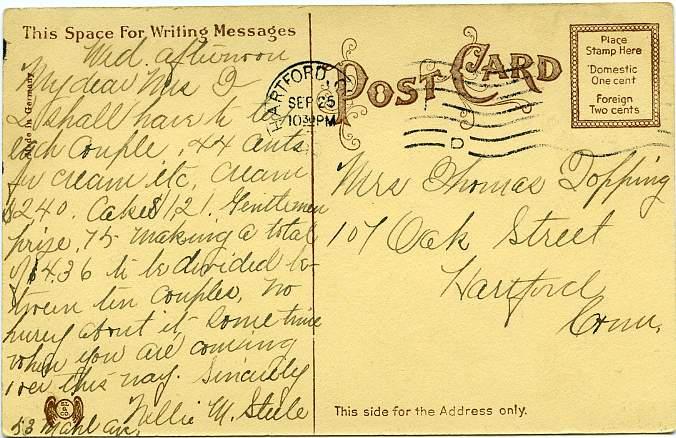 This Space For Writing Messages
Wed. afternoon
My dear Mrs
I shall have to
each couple, 44 cents
for cream etc, Cream
$240. Cakes $121. Gentlemen
prize, 75 making a total
of $4.36 to be divided be-
tween ten couples, No
hurry about it some time
when you are coming
over this way. Sincerely
Nellie M. Steele
53 Mahl ave.
Made in Germany
HARTFORD, C
SEP 25
1030PM
D
POST CARD
Place
Stamp Here
Domestic
One cent
Foreign
Two cents
Mrs Thomas Topping
107 Oak Street
Hartford
Conn.
This side for the Address only.